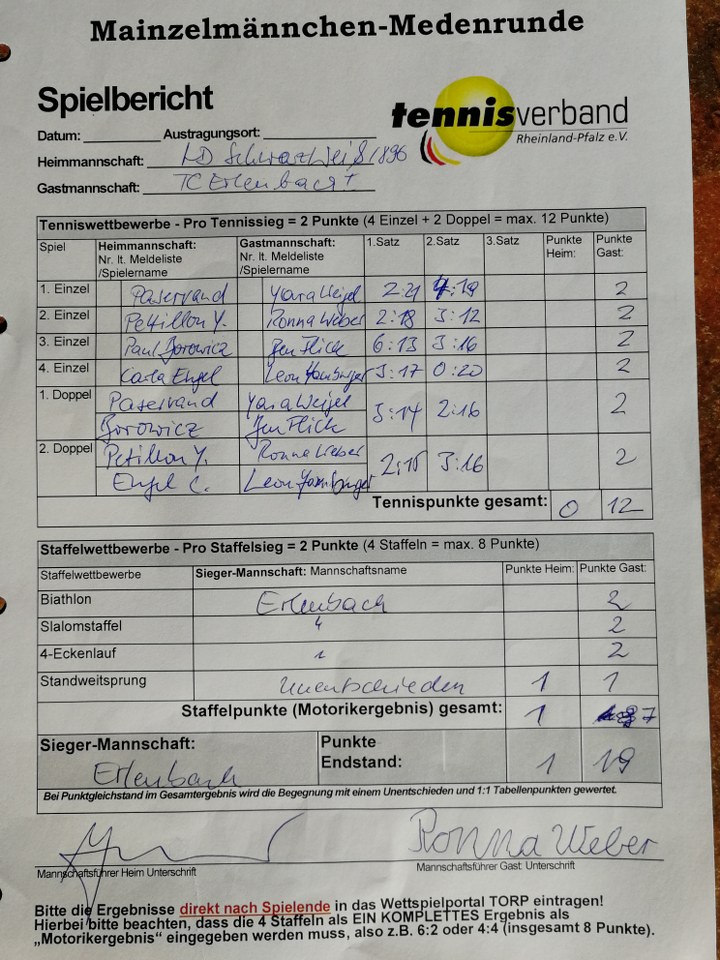 Mainzelmännchen-Medenrunde
Spielbericht
tennisverband
Rheinland-Pfalz e.V.
Datum: Austragungsort:
Heimmannschaft: Schwarz Weiß 1896
Gastmannschaft: TC Erlenbach
Tenniswettbewerbe - Pro Tennissieg = 2 Punkte (4 Einzel + 2 Doppel = max. 12 Punkte)
Spiel Heimmannschaft: Nr. lt. Meldeliste /Spielername Gastmannschaft: Nr. lt. Meldeliste /Spielername 1.Satz 2.Satz 3.Satz Punkte Heim: Punkte Gast:
1. Einzel Paservand Yara Weigel 2:21 4:19 2
2. Einzel Petillon Y. Ronna Weber 2:18 3:12 2
3. Einzel Paul Borowicz Ben Flick 6:13 3:16 2
4. Einzel Carla Engel Leon 3:17 0:20 2
1. Doppel Paservand Yara Weigel 3:14 2:16 2
Borowicz Ben Flick
2. Doppel Petillon Y. Ronna Weber 2:15 3:16 2
Engel C. Leon
Tennispunkte gesamt: 0 12
Staffelwettbewerbe - Pro Staffelsieg = 2 Punkte (4 Staffeln = max. 8 Punkte)
Staffelwettbewerbe Sieger-Mannschaft: Mannschaftsname Punkte Heim: Punkte Gast:
Biathlon Erlenbach 2
Slalomstaffel " 2
4-Eckenlauf " 2
Standweitsprung Unentschieden 1 1
Staffelpunkte (Motorikergebnis) gesamt: 1 7
Sieger-Mannschaft: Erlenbach Punkte Endstand: 1 19
Bei Punktgleichstand im Gesamtergebnis wird die Begegnung mit einem Unentschieden und 1:1 Tabellenpunkten gewertet.
Ronna Weber
Mannschaftsführer Heim Unterschrift Mannschaftsführer Gast: Unterschrift
Bitte die Ergebnisse direkt nach Spielende in das Wettspielportal TORP eintragen!
Hierbei bitte beachten, dass die 4 Staffeln als EIN KOMPLETTES Ergebnis als
„Motorikergebnis“ eingegeben werden muss, also z.B. 6:2 oder 4:4 (insgesamt 8 Punkte).